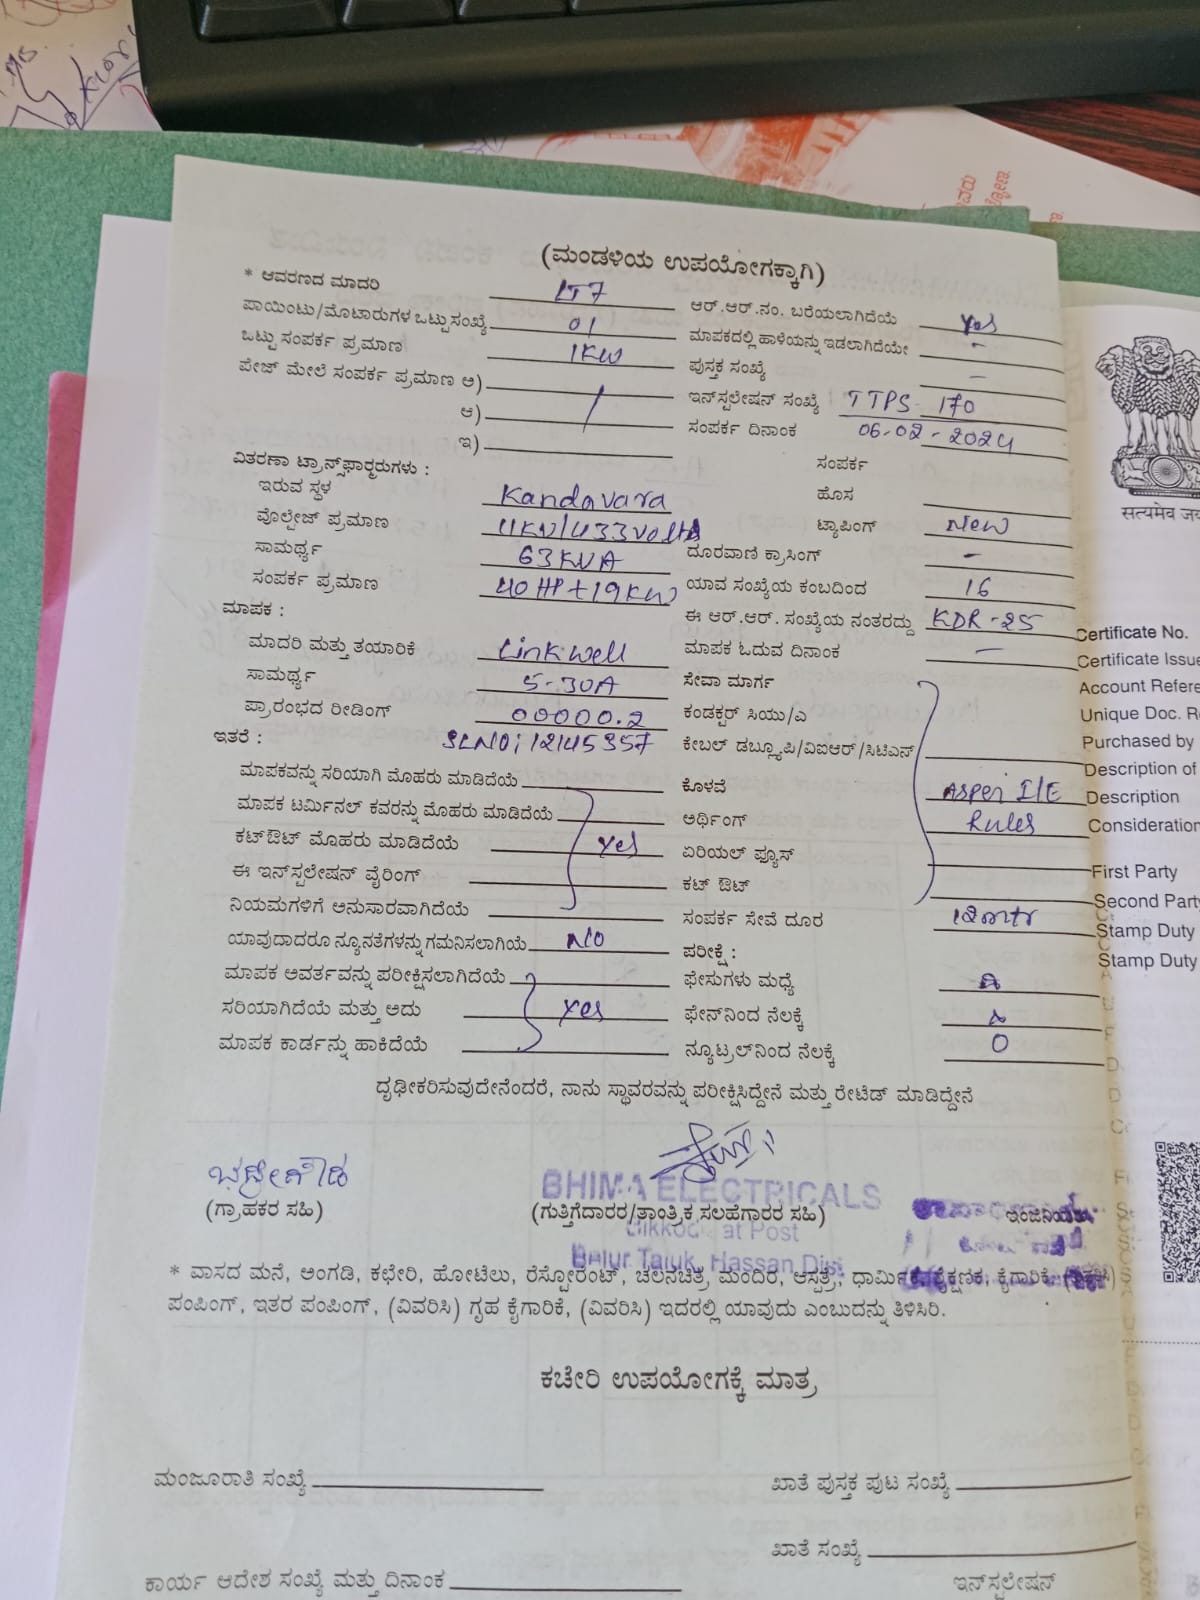 (ಮಂಡಳಿಯ ಉಪಯೋಗಕ್ಕಾಗಿ)
* ಆವರಣದ ಮಾದರಿ LT7
ಪಾಯಿಂಟು/ಮೊಟಾರುಗಳ ಒಟ್ಟುಸಂಖ್ಯೆ 01
ಒಟ್ಟು ಸಂಪರ್ಕ ಪ್ರಮಾಣ 1KW
ಪೇಜ್ ಮೇಲೆ ಸಂಪರ್ಕ ಪ್ರಮಾಣ ಅ)
ಆ)
ಇ)
ವಿತರಣಾ ಟ್ರಾನ್ಸ್‌ಫಾರ್ಮರುಗಳು :
ಇರುವ ಸ್ಥಳ Kandavara
ವೊಲ್ಟೇಜ್ ಪ್ರಮಾಣ 11KV/433volts
ಸಾಮರ್ಥ್ಯ 63KVA
ಸಂಪರ್ಕ ಪ್ರಮಾಣ 40HP+19KW
ಮಾಪಕ :
ಮಾದರಿ ಮತ್ತು ತಯಾರಿಕೆ Linkwell
ಸಾಮರ್ಥ್ಯ 5-30A
ಪ್ರಾರಂಭದ ರೀಡಿಂಗ್ 00000.2
ಇತರೆ : SLNO: 12145357
ಮಾಪಕವನ್ನು ಸರಿಯಾಗಿ ಮೊಹರು ಮಾಡಿದೆಯೆ
ಮಾಪಕ ಟರ್ಮಿನಲ್ ಕವರನ್ನು ಮೊಹರು ಮಾಡಿದೆಯೆ
ಕಟ್‌ಔಟ್ ಮೊಹರು ಮಾಡಿದೆಯೆ Yes
ಈ ಇನ್‌ಸ್ಟಲೇಷನ್ ವೈರಿಂಗ್
ನಿಯಮಗಳಿಗೆ ಅನುಸಾರವಾಗಿದೆಯೆ
ಯಾವುದಾದರೂ ನ್ಯೂನತೆಗಳನ್ನು ಗಮನಿಸಲಾಗಿಯೆ NO
ಮಾಪಕ ಅವರ್ತವನ್ನು ಪರೀಕ್ಷಿಸಲಾಗಿದೆಯೆ
ಸರಿಯಾಗಿದೆಯೆ ಮತ್ತು ಅದು Yes
ಮಾಪಕ ಕಾರ್ಡನ್ನು ಹಾಕಿದೆಯೆ
ಆರ್.ಆರ್.ನಂ. ಬರೆಯಲಾಗಿದೆಯೆ Yes
ಮಾಪಕದಲ್ಲಿ ಹಾಳೆಯನ್ನು ಇಡಲಾಗಿದೆಯೇ -
ಪುಸ್ತಕ ಸಂಖ್ಯೆ -
ಇನ್‌ಸ್ಟಲೇಷನ್ ಸಂಖ್ಯೆ TTPS 170
ಸಂಪರ್ಕ ದಿನಾಂಕ 06-02-2024
ಸಂಪರ್ಕ
ಹೊಸ
ಟ್ಯಾಪಿಂಗ್ New
ದೂರವಾಣಿ ಕ್ರಾಸಿಂಗ್ -
ಯಾವ ಸಂಖ್ಯೆಯ ಕಂಬದಿಂದ 16
ಈ ಆರ್.ಆರ್. ಸಂಖ್ಯೆಯ ನಂತರದ್ದು KDR-25
ಮಾಪಕ ಓದುವ ದಿನಾಂಕ -
ಸೇವಾ ಮಾರ್ಗ
ಕಂಡಕ್ಟರ್ ಸಿಯು/ಎ
ಕೇಬಲ್ ಡಬ್ಲ್ಯೂಪಿ/ವಿಐಆರ್/ಸಿಟಿಎನ್
ಕೊಳವೆ Asper I/E
ಅರ್ಥಿಂಗ್ Rules
ಏರಿಯಲ್ ಫ್ಯೂಸ್
ಕಟ್ ಔಟ್
ಸಂಪರ್ಕ ಸೇವೆ ದೂರ
ಪರೀಕ್ಷೆ :
ಫೇಸುಗಳು ಮಧ್ಯೆ
ಫೇಸ್‌ನಿಂದ ನೆಲಕ್ಕೆ
ನ್ಯೂಟ್ರಲ್‌ನಿಂದ ನೆಲಕ್ಕೆ 0
ದೃಢೀಕರಿಸುವುದೇನೆಂದರೆ, ನಾನು ಸ್ಥಾವರವನ್ನು ಪರೀಕ್ಷಿಸಿದ್ದೇನೆ ಮತ್ತು ರೇಟೆಡ್ ಮಾಡಿದ್ದೇನೆ
(ಗ್ರಾಹಕರ ಸಹಿ)
BHIMA ELECTRICALS
(ಗುತ್ತಿಗೆದಾರರ/ತಾಂತ್ರಿಕ ಸಲಹೆಗಾರರ ಸಹಿ)
at Post
Belur Taluk, Hassan Dist
* ವಾಸದ ಮನೆ, ಅಂಗಡಿ, ಕಛೇರಿ, ಹೋಟೆಲು, ರೆಸ್ಟೋರಂಟ್, ಚಲನಚಿತ್ರ ಮಂದಿರ, ಆಸ್ಪತ್ರೆ, ಧಾರ್ಮಿಕ, ಶೈಕ್ಷಣಿಕ, ಕೈಗಾರಿಕೆ,
ಪಂಪಿಂಗ್, ಇತರ ಪಂಪಿಂಗ್, (ವಿವರಿಸಿ) ಗೃಹ ಕೈಗಾರಿಕೆ, (ವಿವರಿಸಿ) ಇದರಲ್ಲಿ ಯಾವುದು ಎಂಬುದನ್ನು ತಿಳಿಸಿರಿ.
ಕಚೇರಿ ಉಪಯೋಗಕ್ಕೆ ಮಾತ್ರ
ಮಂಜೂರಾತಿ ಸಂಖ್ಯೆ
ಖಾತೆ ಪುಸ್ತಕ ಪುಟ ಸಂಖ್ಯೆ
ಖಾತೆ ಸಂಖ್ಯೆ
ಕಾರ್ಯ ಆದೇಶ ಸಂಖ್ಯೆ ಮತ್ತು ದಿನಾಂಕ
ಇನ್‌ಸ್ಟಲೇಷನ್
सत्यमेव जय
Certificate No.
Certificate Issue
Account Refere
Unique Doc. R
Purchased by
Description of
Description
Consideration
First Party
Second Party
Stamp Duty
Stamp Duty